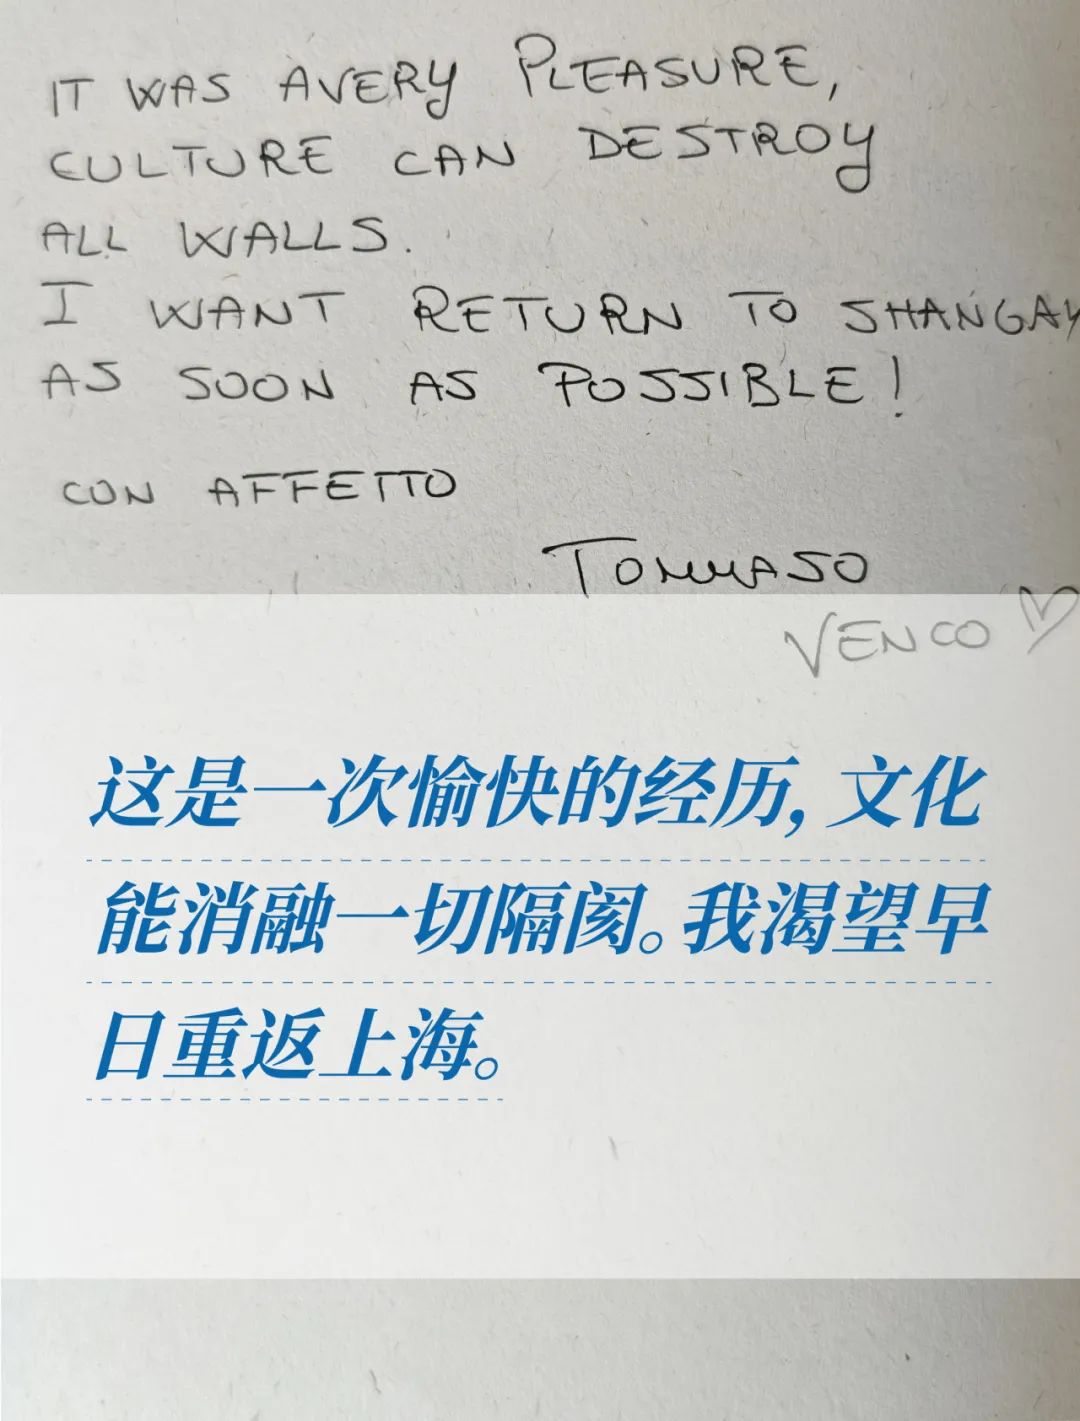 IT WAS AVERY PLEASURE,
CULTURE CAN DESTROY
ALL WALLS.
I WANT RETURN TO SHANGAY
AS SOON AS POSSIBLE!
CON AFFETTO
TOMMASO
VENCO
这是一次愉快的经历，文化
能消融一切隔阂。我渴望早
日重返上海。